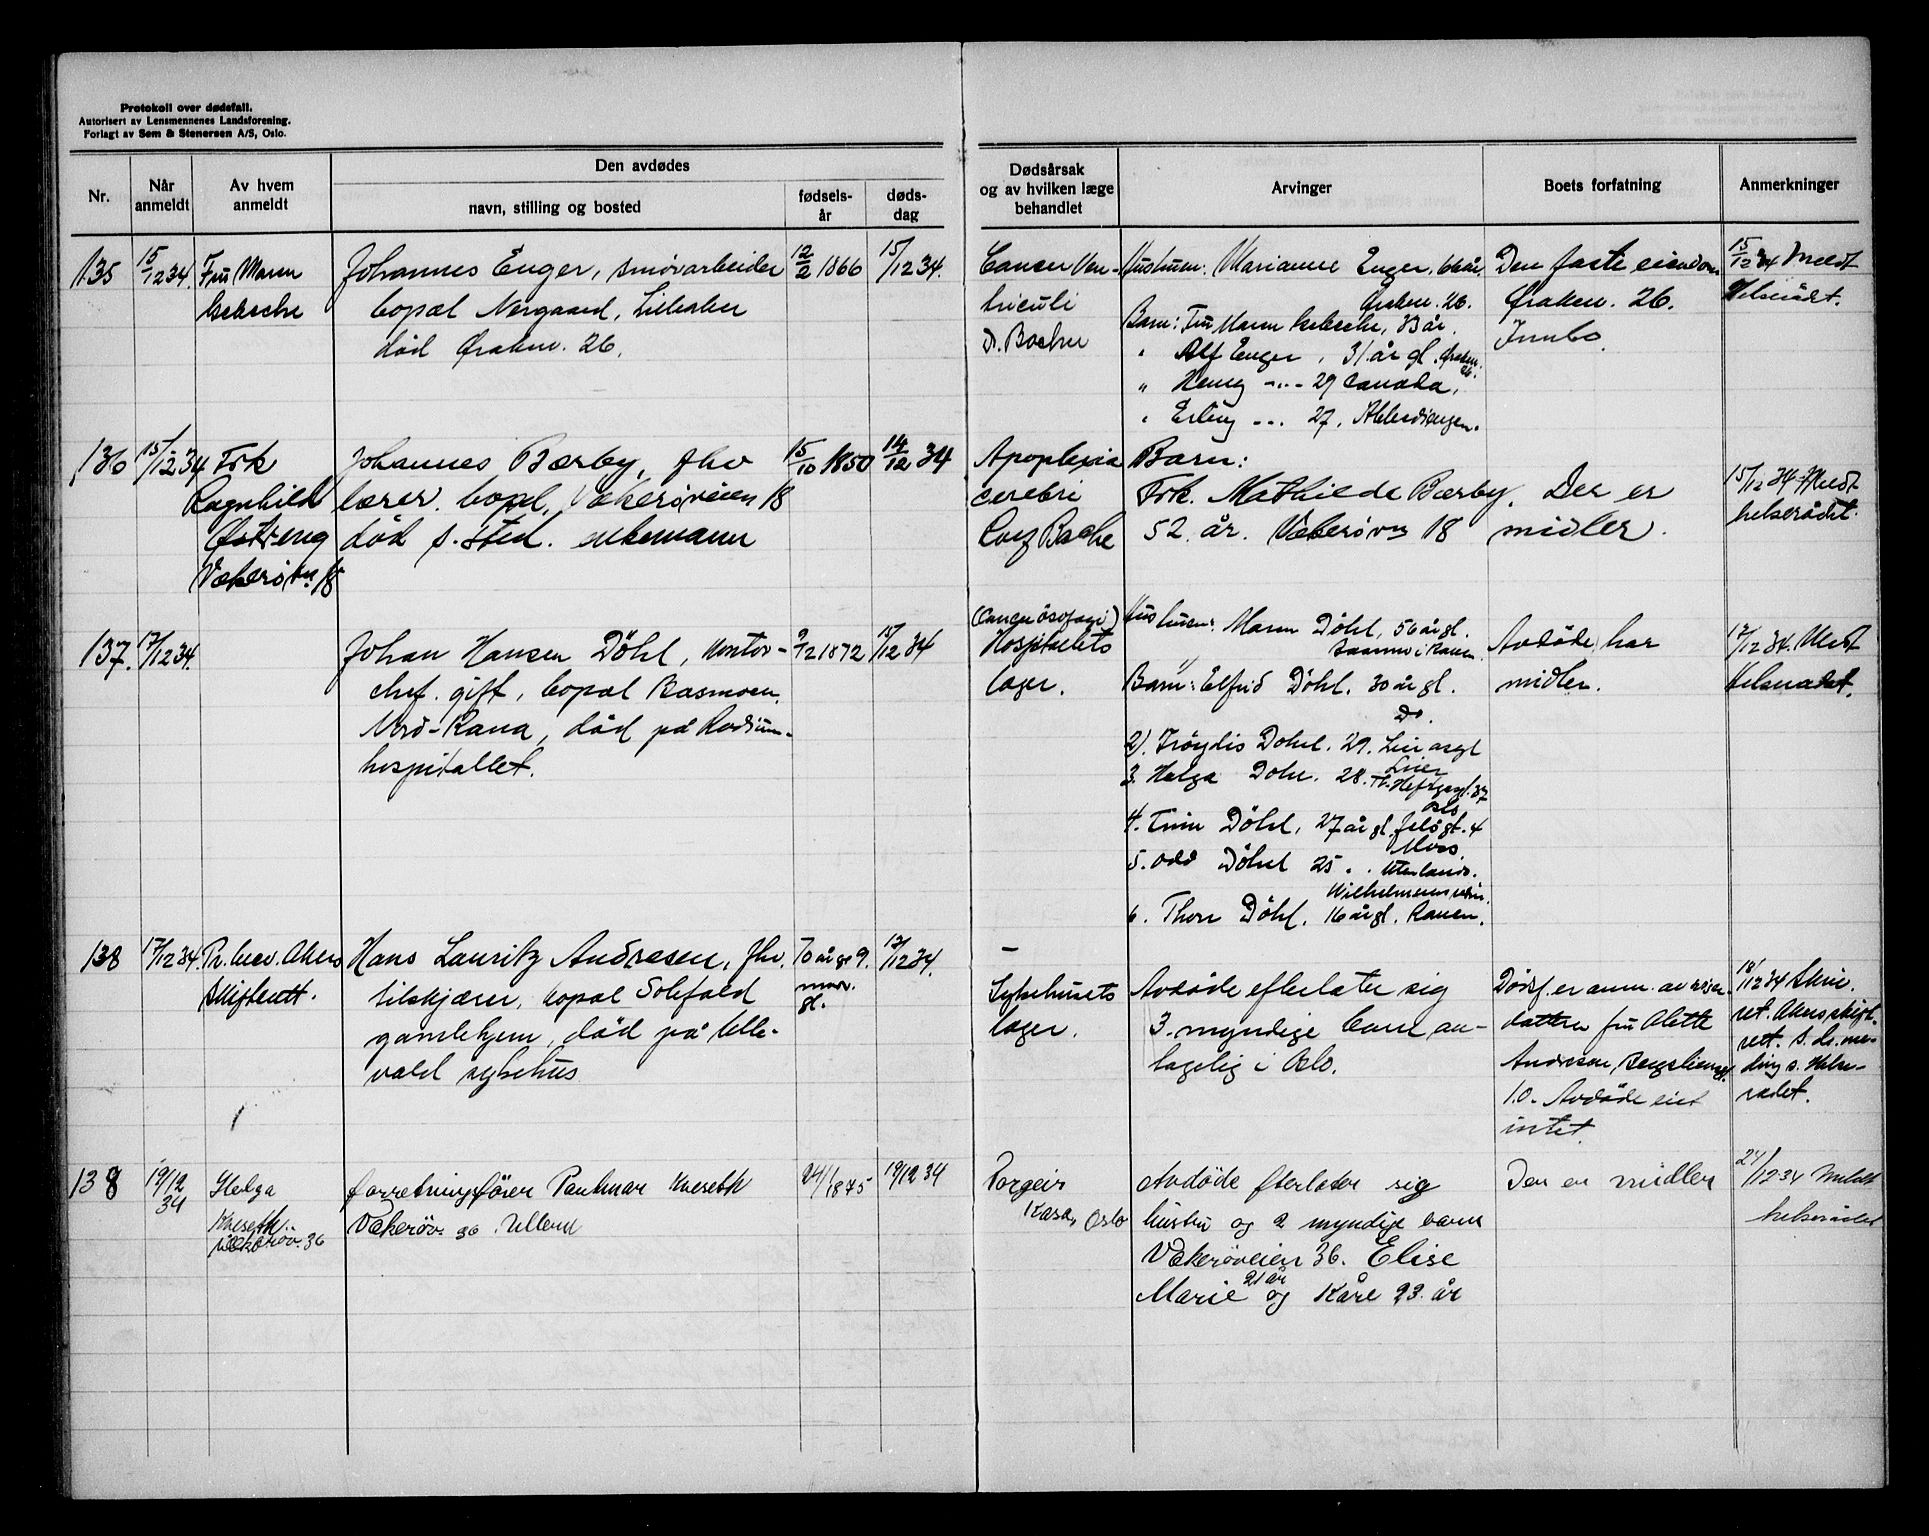 Protokoll over dødsfall.
Autorisert av Lensmennenes Landsforening.
Forlagt av Sem & Stenersen A/S, Oslo.
Nr.
Når anmeldt
Av hvem anmeldt
Den avdødes
navn, stilling og bosted
fødsels-
år
døds-
dag
Dødsårsak
og av hvilken læge
behandlet
Arvinger
Boets forfatning
Anmerkninger
135
15/12 34.
Fru
Johannes Enger, smørarbeider
bopæl Norgaard, Lilleaker
død Øraken. 26.
12/2 1866
15/12 34.
Cancer Ven-
triculi
D. Bache
Hustruen: Marianne Enger, 66 år,
Øraken. 26.
Barn: Fru 33 år.
" Alf Enger, 31 år gl. Øraken. 26.
" Henry -"- 29 Canada,
" Erling --- 27,
Den faste eiendom
Øraken. 26.
Innbo.
15/12 34 Meldt
Helserådet.
136
15/12 34
Frk
Ragnhild
Østreng
Vækerøvn 18
Johannes Bærby, fhv
lærer. bopl. Vækerøveien 18
død s. sted. enkemann
15/10 1850
14/12 34
Apoplexia
cerebri
Bache
Barn:
Frk. Mathilde Bærby,
52 år. Vækerøvn 18
Der er
midler.
15/12 34 Meldt
helserådet.
137.
17/12 34.
Johan Hansen Döhl, kontor-
chef. gift, bopæl Basmoen,
Nord-Rana, død på Radium-
hospitallet.
9/2 1872
15/12 34
(Cancer ösofagi)
Hospitalets
læger.
Hustruen: Maren Döhl, 56 år gl.
Båsmo i Ranen.
1)
Barn: Elfrid Döhl. 30 år gl.
Do.
2). Frøydis Dohl. 29. Lier
Lier
3. Helga Dohl. 28. 37
Oslo
4. Trine Döhl, 27 år gl. Jeløgt. 4
Moss
5. Odd Döhl 25 . . utenlands.
6. Thor Döhl. 16 år gl. Ranen.
Avdøde har
midler.
17/12 34. Meldt
Helserådet.
138
17/12 34.
Pr. brev. Akers
skifterett.
Hans Lauritz Andresen, fhv.
tilskjærer, bopæl Solefald
gamlehjem, død på Ulle-
vald sykehus
70 år gl
9. mar.
gl.
12/12 34.
-
Sykehusets
læger.
Avdøde efterlater sig
3. myndige barn an-
tagelig i Oslo.
Dødsf. er anm. av
datteren fru Alette
Andresen,
10. Avdøde eiet
intet.
18/12 34 Skriv.
ret. Akers skift.
rett. S. d. mel-
ding s. Helse-
rådet.
138
19/12 34
Helga
Kveseth
Vækerøv. 36
forretningsfører Kveseth
Vækerøv. 36. Ullern
24/1 1875
19/12 34
Torgeir
Kasa, Oslo
Avdöde efterlater sig
hustru og 2 myndige barn
Vækerøveien 36. Elise
Marie 21 år og Kåre 23. år
Der er midler
24/12 34 Meldt
helserådet